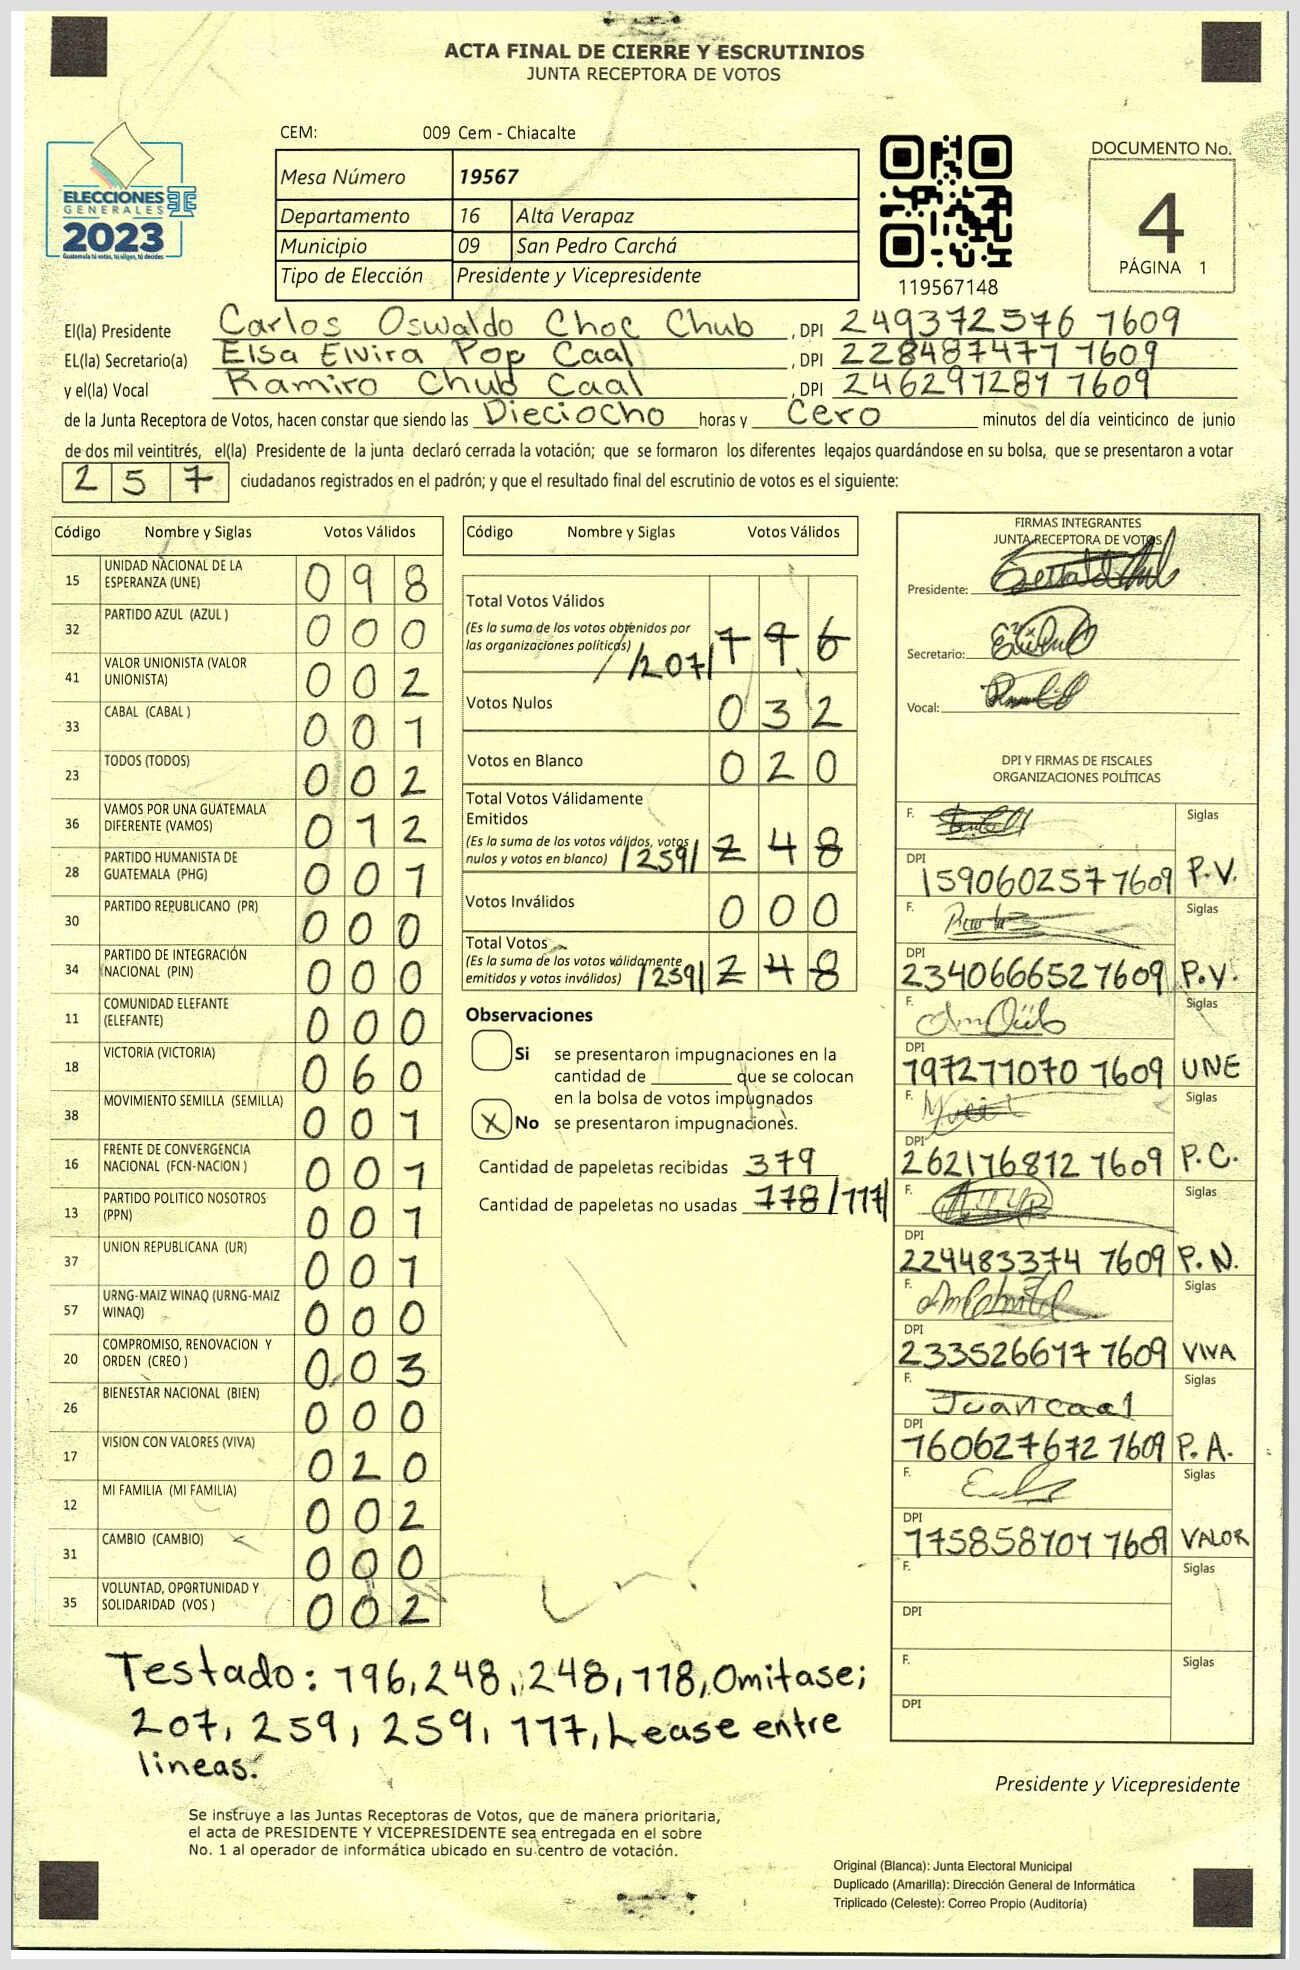 ACTA FINAL DE CIERRE Y ESCRUTINIOS
JUNTA RECEPTORA DE VOTOS
CEM: 009 Cem - Chiacalte
ELECCIONES
GENERALES
2023
Guatemala tú votas, tú eliges, tú decides
Mesa Número 19567
Departamento 16 Alta Verapaz
Municipio 09 San Pedro Carchá
Tipo de Elección Presidente y Vicepresidente
119567148
DOCUMENTO No.
4
PÁGINA 1
El(la) Presidente Carlos Oswaldo Choc Chub , DPI 249372576 1609
EL(la) Secretario(a) Elsa Elvira Pop Caal , DPI 228487477 1609
y el(la) Vocal Ramiro Chub Caal , DPI 246297281 1609
de la Junta Receptora de Votos, hacen constar que siendo las Dieciocho horas y Cero minutos del día veinticinco de junio
de dos mil veintitrés, el(la) Presidente de la junta declaró cerrada la votación; que se formaron los diferentes legajos quardándose en su bolsa, que se presentaron a votar
2 5 7 ciudadanos registrados en el padrón; y que el resultado final del escrutinio de votos es el siguiente:
Código Nombre y Siglas Votos Válidos
15 UNIDAD NACIONAL DE LA ESPERANZA (UNE) 0 9 8
32 PARTIDO AZUL (AZUL ) 0 0 0
41 VALOR UNIONISTA (VALOR UNIONISTA) 0 0 2
33 CABAL (CABAL ) 0 0 1
23 TODOS (TODOS) 0 0 2
36 VAMOS POR UNA GUATEMALA DIFERENTE (VAMOS) 0 1 2
28 PARTIDO HUMANISTA DE GUATEMALA (PHG) 0 0 1
30 PARTIDO REPUBLICANO (PR) 0 0 0
34 PARTIDO DE INTEGRACIÓN NACIONAL (PIN) 0 0 0
11 COMUNIDAD ELEFANTE (ELEFANTE) 0 0 0
18 VICTORIA (VICTORIA) 0 6 0
38 MOVIMIENTO SEMILLA (SEMILLA) 0 0 1
16 FRENTE DE CONVERGENCIA NACIONAL (FCN-NACION ) 0 0 1
13 PARTIDO POLITICO NOSOTROS (PPN) 0 0 1
37 UNION REPUBLICANA (UR) 0 0 1
57 URNG-MAIZ WINAQ (URNG-MAIZ WINAQ) 0 0 0
20 COMPROMISO, RENOVACION Y ORDEN (CREO ) 0 0 3
26 BIENESTAR NACIONAL (BIEN) 0 0 0
17 VISION CON VALORES (VIVA) 0 2 0
12 MI FAMILIA (MI FAMILIA) 0 0 2
31 CAMBIO (CAMBIO) 0 0 0
35 VOLUNTAD, OPORTUNIDAD Y SOLIDARIDAD (VOS ) 0 0 2
Código Nombre y Siglas Votos Válidos
Total Votos Válidos
(Es la suma de los votos obtenidos por
las organizaciones políticas) /207/ 1 9 6
Votos Nulos 0 3 2
Votos en Blanco 0 2 0
Total Votos Válidamente
Emitidos
(Es la suma de los votos válidos, votos
nulos y votos en blanco) /259/ 2 4 8
Votos Inválidos 0 0 0
Total Votos
(Es la suma de los votos válidamente
emitidos y votos inválidos) /259/ 2 4 8
Observaciones
Si se presentaron impugnaciones en la
cantidad de ________ que se colocan
en la bolsa de votos impugnados
X No se presentaron impugnaciones.
Cantidad de papeletas recibidas 379
Cantidad de papeletas no usadas 118/117/
FIRMAS INTEGRANTES
JUNTA RECEPTORA DE VOTOS
Presidente:
Secretario:
Vocal:
DPI Y FIRMAS DE FISCALES
ORGANIZACIONES POLÍTICAS
F. Siglas
DPI 159060257 1609 P.V.
F. Siglas
DPI 234066652 1609 P.V.
F. Siglas
DPI 197271070 1609 UNE
F. Siglas
DPI 262176812 1609 P.C.
F. Siglas
DPI 224483374 1609 P.N.
F. Siglas
DPI 233526617 1609 VIVA
F. Juan Caal Siglas
DPI 160627672 1609 P.A.
F. Siglas
DPI 175858101 1609 VALOR
F. Siglas
DPI
F. Siglas
DPI
Testado: 196, 248, 248, 118, Omitase;
207, 259, 259, 117, Lease entre
lineas.
Presidente y Vicepresidente
Se instruye a las Juntas Receptoras de Votos, que de manera prioritaria,
el acta de PRESIDENTE Y VICEPRESIDENTE sea entregada en el sobre
No. 1 al operador de informática ubicado en su centro de votación.
Original (Blanca): Junta Electoral Municipal
Duplicado (Amarilla): Dirección General de Informática
Triplicado (Celeste): Correo Propio (Auditoría)